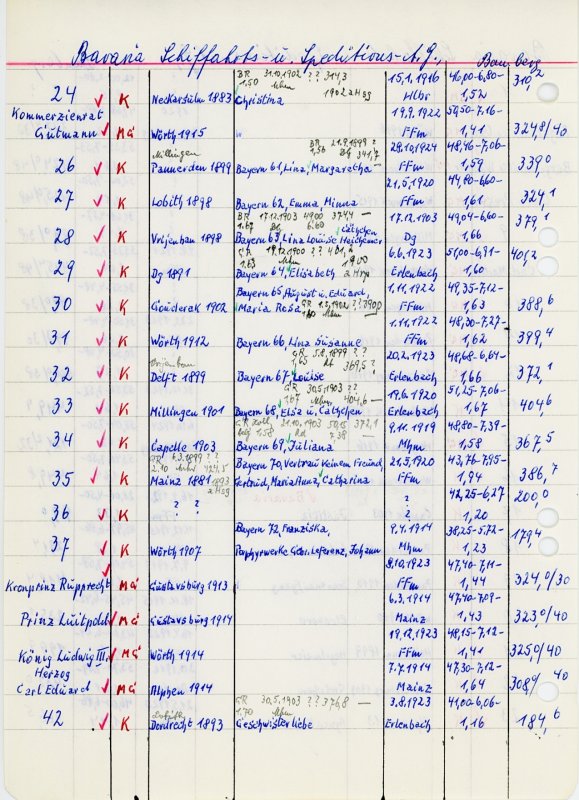 Bavaria Schiffahrts- u. Speditions-A.G., Bamberg
BR 31.10.1902 ? ? 314,3
15.1.1916 46,00-6,80- 310,2
24 K Neckarsulm 1883 Christina 1902 a Hsg Hlbr 1,52
Kommerzienrat 19.9.1922 50,50-7,16-
Gutmann MG Wörth 1915 Ffm 1,41 324,8/40
Millingen BR 21.9.1899 ?
1,56 341,7 28.10.1924 48,46-7,06-
26 K Pannerden 1899 Bayern 61, Lina, Margaretha Ffm 1,59 339,0
21.5.1920 44,60-6,60-
27 K Lobith 1898 Bayern 62, Emma, Minna Ffm 1,61 324,1
BR 17.12.1903 4900 374,4 — 17.12.1903 49,04-6,60- 379,1
1,67 Dg 6.60 Cätchen
28 K Vrijenban 1898 Bayern 63, Lina Louise Dg 1,66
GR 19.12.1900 ? ? 401,4 6.6.1923 51,00-6,91- 401,2
1,63 Mhm 1900
29 K Dg 1891 Bayern 64, Elisabeth a Hsg Erlenbach 1,60
Bayern 65, August u. Eduard, 1.11.1922 49,35-7,12-
30 K Gouderek 1902 Maria Rosa Ffm 1,63 388,6
1,60 Mhm 1.11.1922 48,30-7,27-
31 K Wörth 1912 Bayern 66, Lina Susanne Ffm 1,62 399,4
Vrijenban GR 5.8.1899 ? ?
1,65 Rd 369,5 ? 20.2.1923 48,68-6,64-
32 K Delft 1899 Bayern 67, Louise Erlenbach 1,66 372,1
GR 30.5.1903 ? ?
1,67 Mhm 404,6 — 19.6.1920 51,25-7,06-
33 K Millingen 1901 Bayern 68, Elsa u. Cätchen Erlenbach 1,67 404,6
GR Holl. 21.10.1903 50,15 372,1
1,58 Rd 7.38 — 9.11.1919 48,80-7,39-
34 K Capelle 1903 Bayern 69, Juliana Mhm 1,58 367,5
GR 4.3.1899 ? ?
2.10 424,5 Bayern 70, Vertrau Keinem Freund, 21.5.1920 43,76-7,95-
35 K Mainz 1881 1893 a Hsg Gertrud, Maria Anna, Catharina Ffm 1,94 386,7
? 42,25-6,27 200,0
36 K ? ? ? 1,20
Bayern 72, Franziska, 9.4.1914 38,25-5,72- 179,4
37 K Wörth 1907 Porphyrwerke Gebr. Leferenz, Johann Mhm 1,23
9.10.1923 47,40-7,11-
Kronprinz Rupprecht MG Gustavsburg 1913 Ffm 1,44 324,0/30
6.3.1914 47,40-7,09-
Prinz Luitpold MG Gustavsburg 1914 Mainz 1,43 323,0/40
19.12.1923 48,15-7,12-
König Ludwig III. MG Wörth 1914 Ffm 1,41 325,0/40
Herzog 7.7.1914 47,30-7,12-
Carl Eduard MG Alphen 1914 Mainz 1,64 308,9/40
GR 30.5.1903 ? ? 376,8 —
1.70 Mhm 3.8.1923 41,00-6,06-
42 K Dordrecht 1893 Geschwisterliebe Erlenbach 1,16 184,6